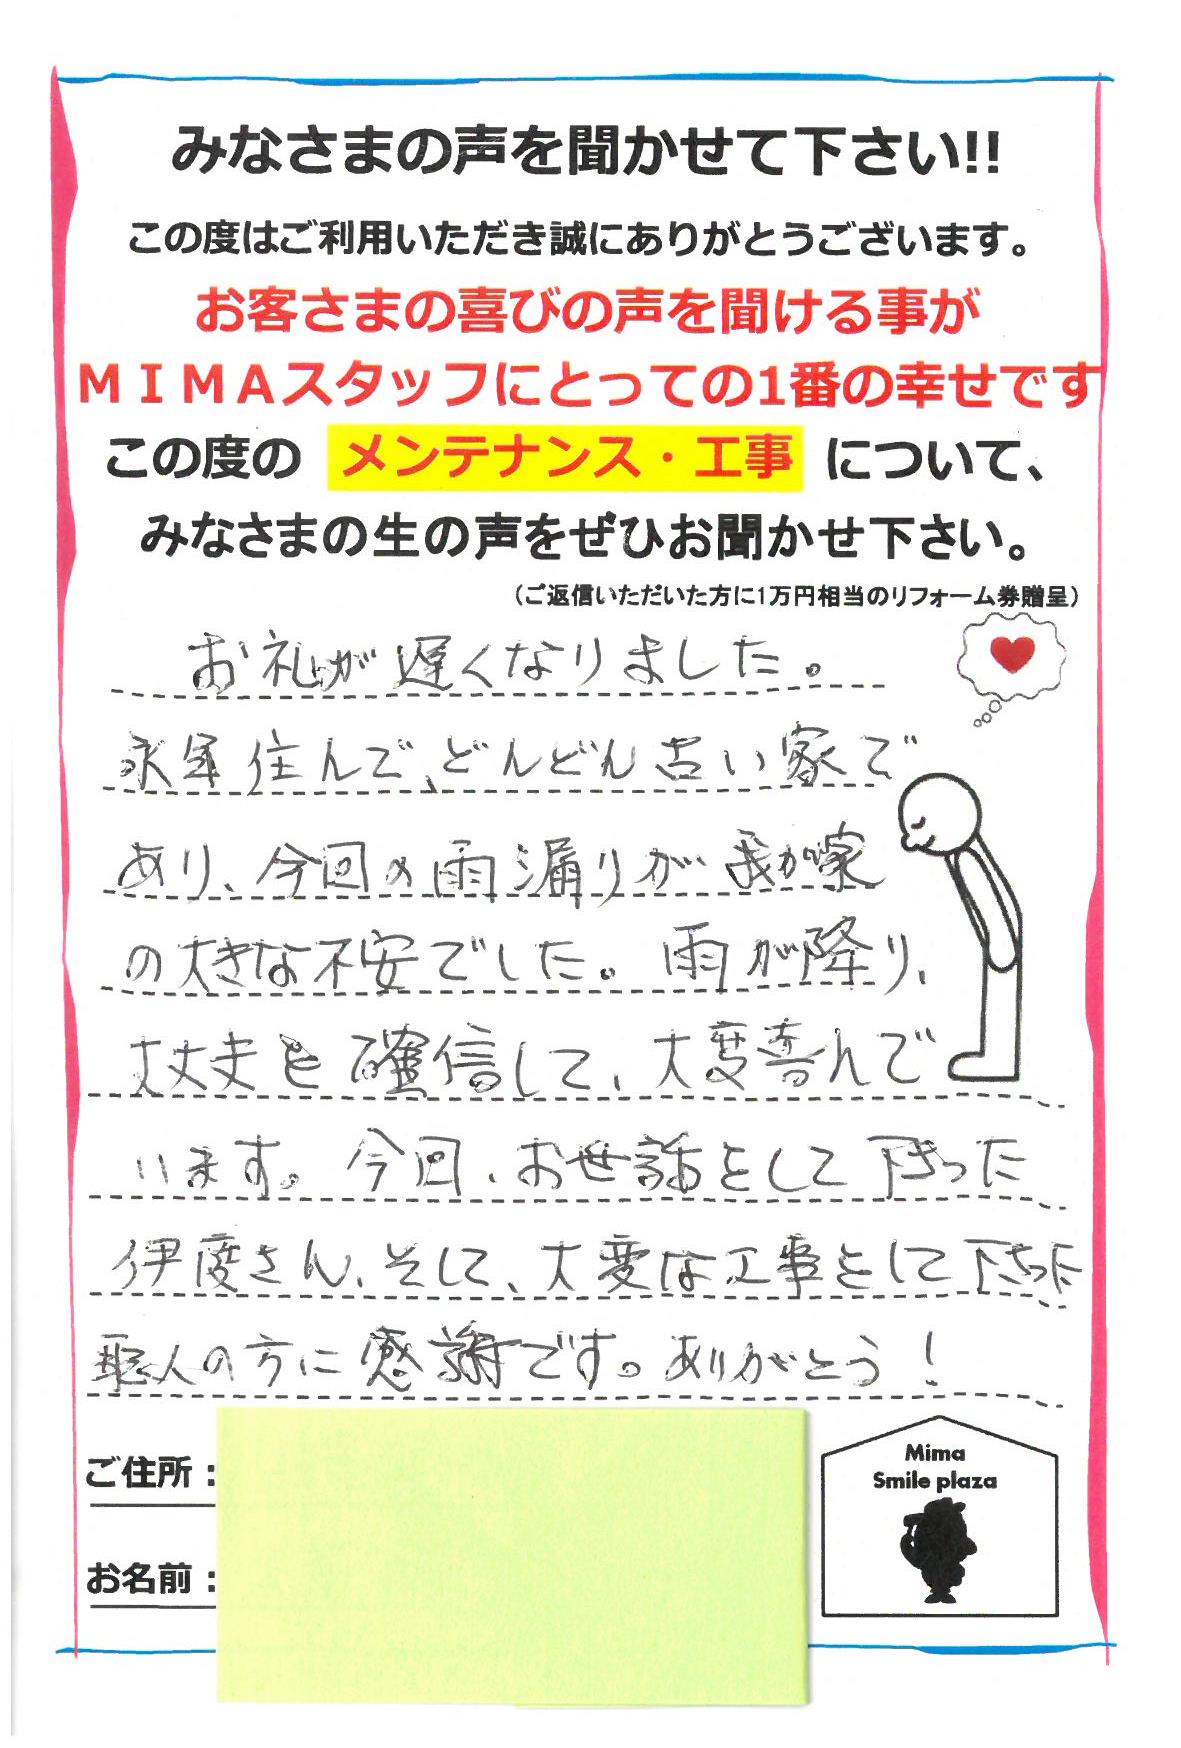 みなさまの声を聞かせて下さい!!
この度はご利用いただき誠にありがとうございます。
お客さまの喜びの声を聞ける事が
ＭＩＭＡスタッフにとっての1番の幸せです
この度の メンテナンス・工事 について、
みなさまの生の声をぜひお聞かせ下さい。
（ご返信いただいた方に1万円相当のリフォーム券贈呈）
お礼が遅くなりました。
永年住んで、どんどん古い家で
あり、今回の雨漏りが我が家
の大きな不安でした。雨が降り、
丈丈夫を確信して、大変喜んで
います。今回、お世話をして下さった
伊度さん、そして、大変な工事をして下さった
職人の方に感謝です。ありがとう！
ご住所：
お名前：
Mima
Smile plaza